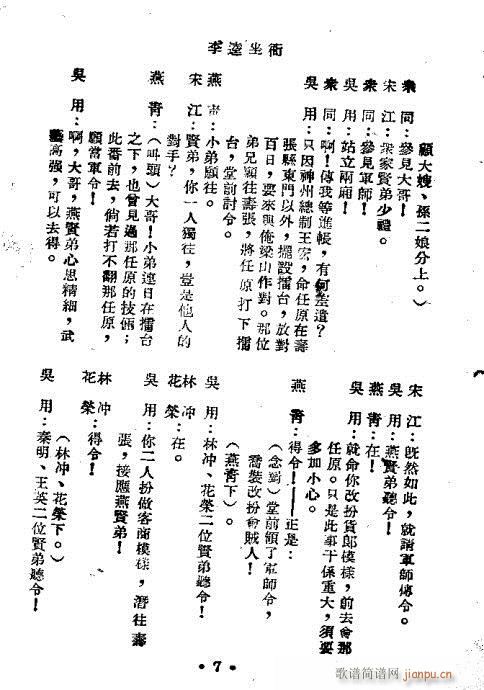 李逵坐衙
顧大嫂、孫二娘分上。）
衆　同：參見大哥！
宋　江：衆家賢弟少禮。
衆　同：參見軍師！
吳　用：站立兩廂！
衆　同：啊！傳我等進帳，有何差遣？
吳　用：只因神州總制王宏，命任原在壽
張縣東門以外，擺設擂台，放對
百日，要來與俺梁山作對。那位
弟兄願往壽張，將任原打下擂
台，堂前討令。
燕　青：小弟願往。
宋　江：賢弟，你一人獨往，豈是他人的
對手？
燕　青：（叫頭）大哥！小弟連日在擂台
之下，也曾見過那任原的技倆；
此番前去，倘若打不翻那任原，
願當軍令！
吳　用：啊，大哥，燕賢弟心思精細，武
藝高强，可以去得。
宋　江：既然如此，就請軍師傳令。
吳　用：燕賢弟聽令！
燕　青：在！
吳　用：就命你改扮貨郎模樣，前去會那
任原。只是此事干係重大，須要
多加小心。
燕　青：得令！——正是：
（念對）堂前領了軍師令，
喬裝改扮會賊人！
（燕青下）。
吳　用：林冲、花榮二位賢弟聽令！
林　冲
花　榮：在。
吳　用：你二人扮做客商模樣，潛往壽
張，接應燕賢弟！
林　冲
花　榮：得令！
（林冲、花榮下。）
吳　用：秦明、王英二位賢弟聽令！
• 7 •
歌谱简谱网
jianpu.cn